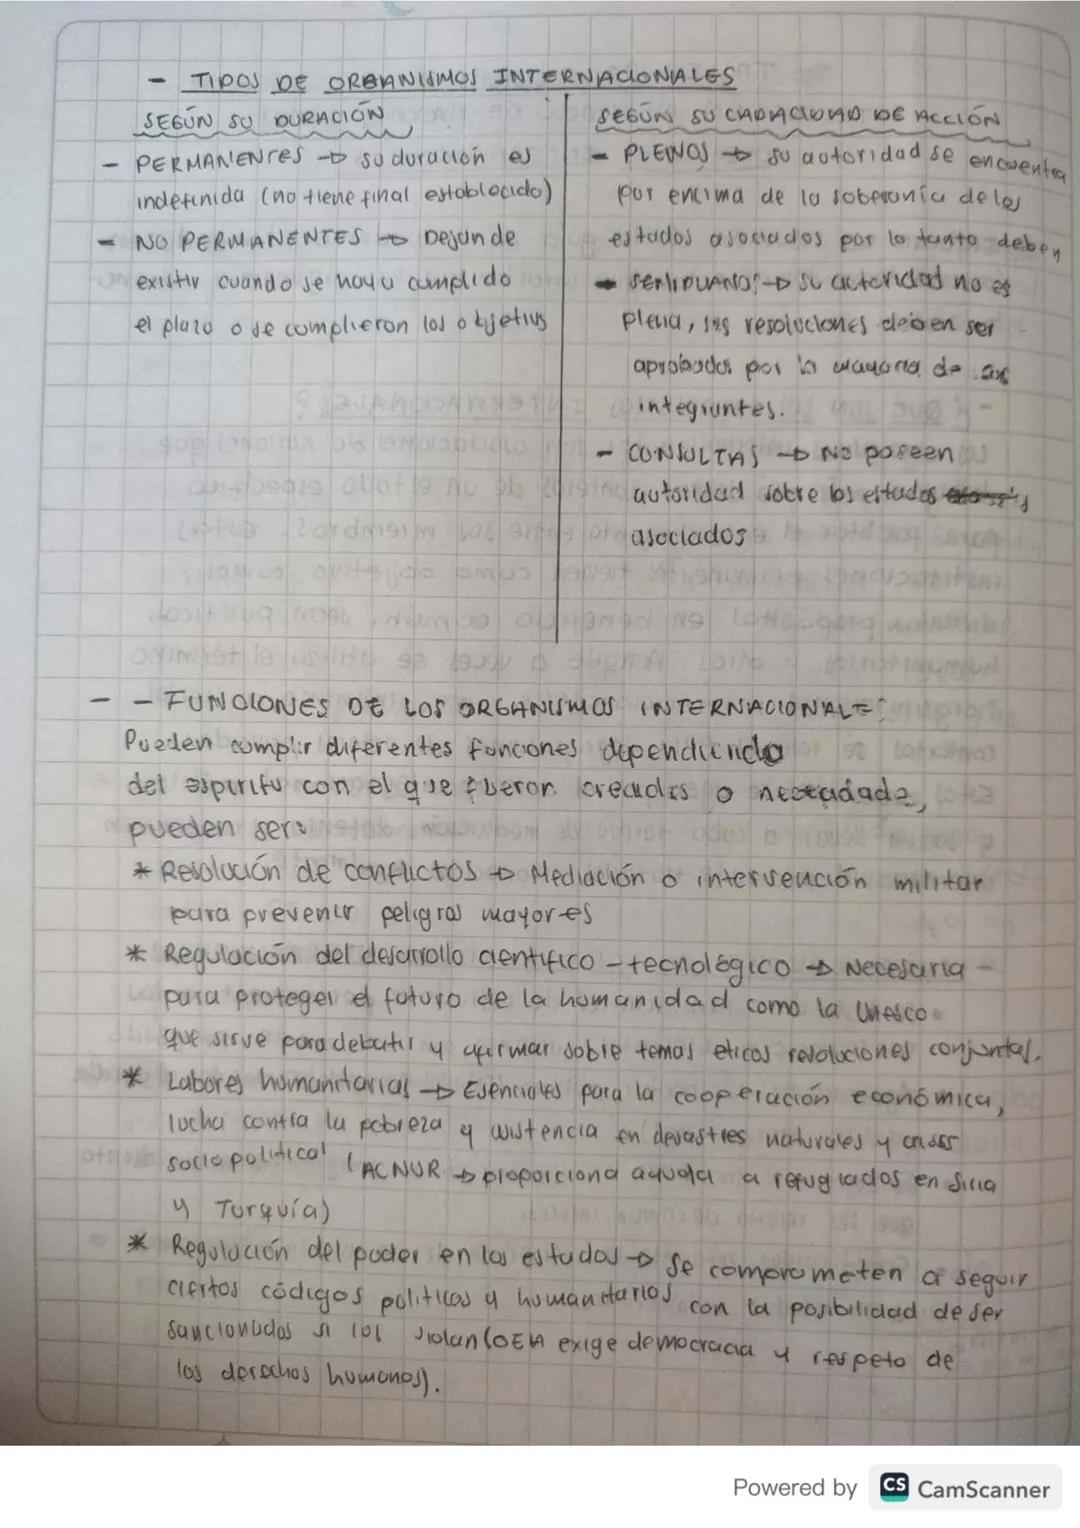 - TIPOS DE ORGANISMOS INTERNACIONALES
SEGÚN SU DURACIÓN
- PERMANENTES → su duración es
indefinida (no tiene final establecido)
- NO PERMANENTES → Dejan de
existir cuando se haya cumplido
el plazo o se cumplieron los objetivs
SEGÚN SU CAPACIDAD DE ACCIÓN
- PLENOS → su autoridad se encuentra
por encima de la soberanía de los
estados asociados por lo tanto deben
- SEMIPLANOS → Su autoridad no es
plena, sus resoluciones deben ser
aprobadas por la mayoria de sus
integrantes.
- CONSULTAS → No poseen
autoridad sobre los estados
asociados
- - FUNCIONES DE LOS ORGANISMOS INTERNACIONALES
Pueden cumplir diferentes funciones dependiendo
del espiritu con el que fueron creados o necesidade,
pueden ser:
* Resolución de conflictos → Mediación o intervención militar
para prevenir peligros mayores
* Regulación del desarrollo cientifico - tecnológico → Necesaria -
para proteger el futuro de la humanidad como la Unesco
que sirve para debatir y afirmar sobre temas eticos resoluciones conjuntas.
* Labores humanitarias → Esenciales para la cooperación económica,
lucha contra la pobreza y asistencia en desastres naturales y crisis
sociopolitical (ACNUR → proporciona ayuda a refugiados en Siria
y Turquía)
* Regulación del poder en los estados → Se comprometen a seguir
ciertos códigos politicos y humanitarios con la posibilidad de ser
sancionados si los violan (OEA exige democracia y respeto de
los derechos humanos).
Powered by CS CamScanner